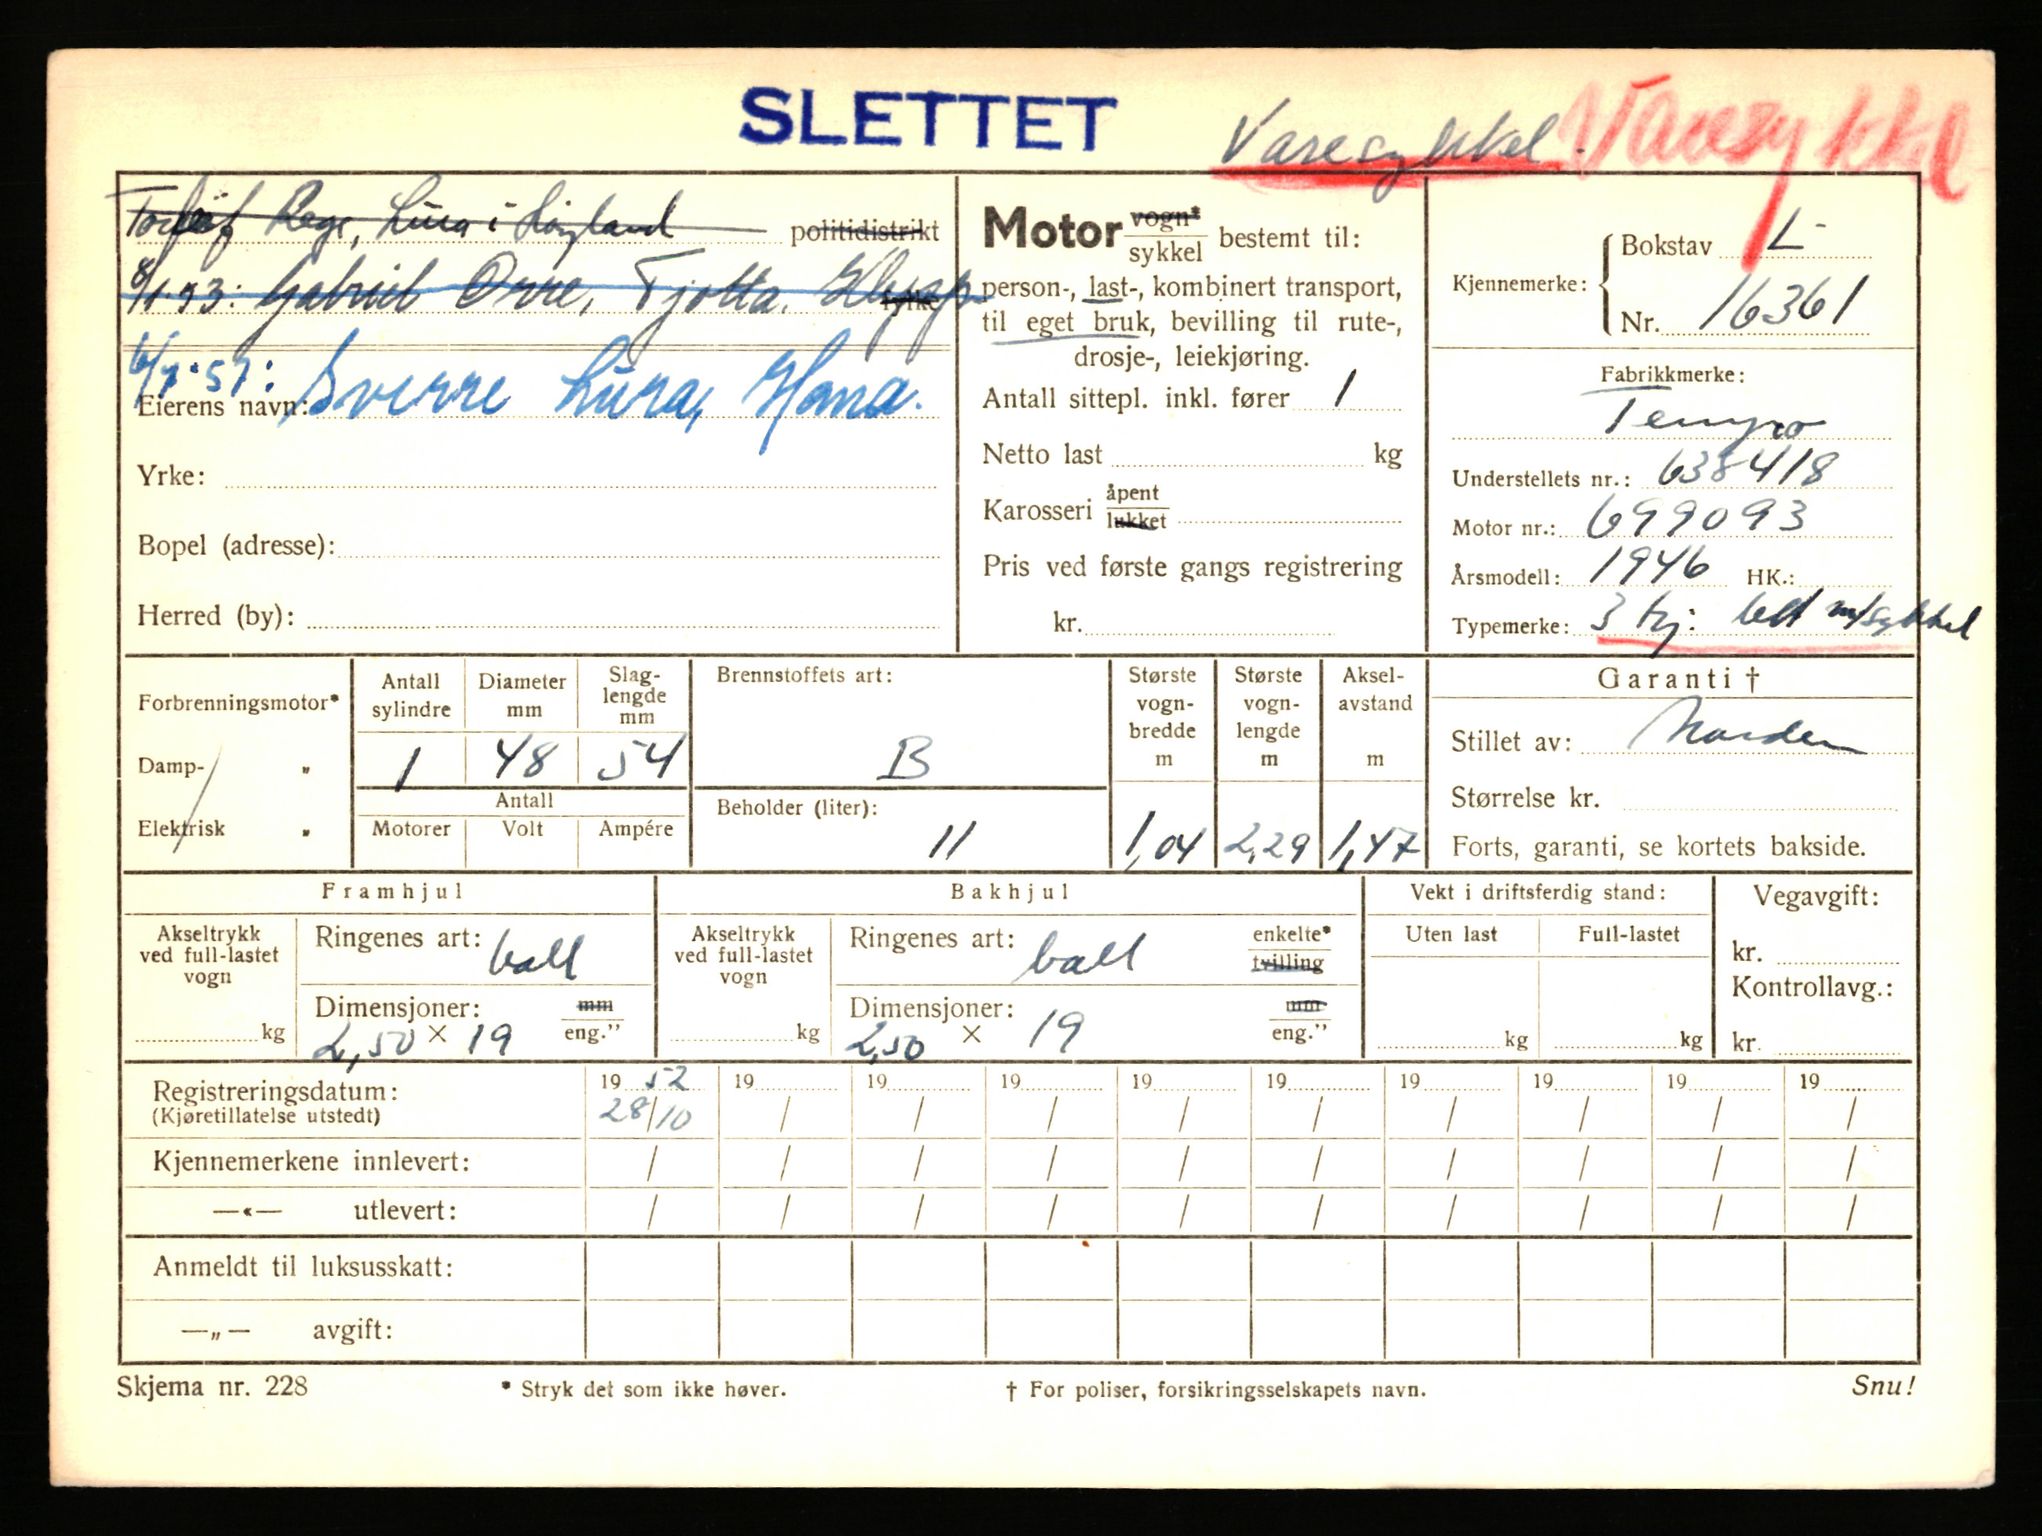 SLETTET
Varesykkel. Varesykkel
Torleif Rege, Lura i Høyland politidistrikt
8/1.53: Gabriel Orre, Tjøtta, Klepp fylke
6/7.57: Sverre Lura, Hana.
Eierens navn:
Yrke:
Bopel (adresse):
Herred (by):
Motor vogn* sykkel bestemt til:
person-, last-, kombinert transport,
til eget bruk, bevilling til rute-,
drosje-, leiekjøring.
Antall sittepl. inkl. fører 1
Netto last kg
Karosseri åpent lukket
Pris ved første gangs registrering
kr.
Kjennemerke: Bokstav L-
Nr. 16361
Fabrikkmerke:
Tempo
Understellets nr.: 638418
Motor nr.: 699093
Årsmodell: 1946 HK.:
Typemerke: 3 hj: lett m/sykkel
Forbrenningsmotor*
Damp- „
Elektrisk „
Antall sylindre
Diameter mm
Slag-lengde mm
1 48 54
Antall
Motorer Volt Ampére
Brennstoffets art:
B
Beholder (liter):
11
Største vogn-bredde m
1,04
Største vogn-lengde m
2,29
Aksel-avstand m
1,47
Garanti †
Stillet av: Norden
Størrelse kr.
Forts, garanti, se kortets bakside.
Framhjul
Akseltrykk ved full-lastet vogn
kg
Ringenes art: ball
Dimensjoner: mm
2,50 × 19 eng.”
Bakhjul
Akseltrykk ved full-lastet vogn
kg
Ringenes art: ball enkelte* tvilling
Dimensjoner: mm
2,50 × 19 eng.”
Vekt i driftsferdig stand:
Uten last Full-lastet
kg kg
Vegavgift:
kr.
Kontrollavg.:
kr.
Registreringsdatum: 19 52 19 19 19 19 19 19 19 19 19
(Kjøretillatelse utstedt) 28/10 / / / / / / / / /
Kjennemerkene innlevert: / / / / / / / / / /
—«— utlevert: / / / / / / / / / /
Anmeldt til luksusskatt:
—„— avgift:
Skjema nr. 228 * Stryk det som ikke høver. † For poliser, forsikringsselskapets navn. Snu!